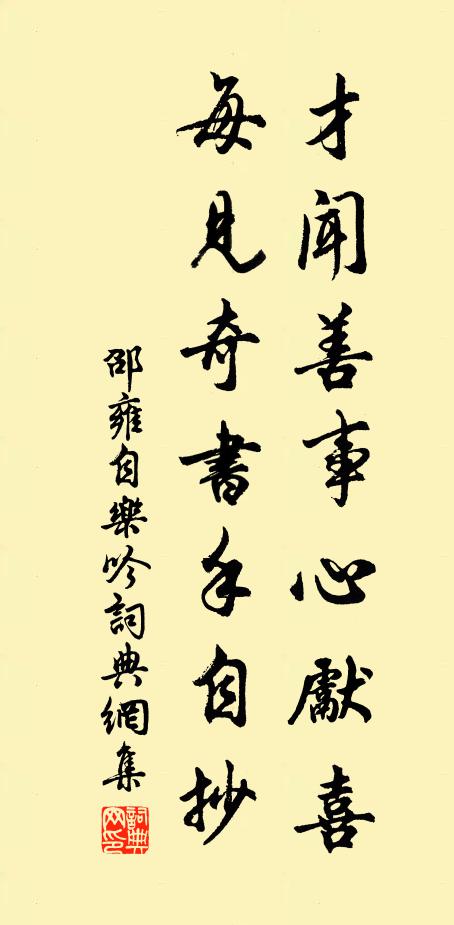 才聞善事心獻喜
每見奇書手自抄
邵雍自樂吟詞典網集
詞典網印